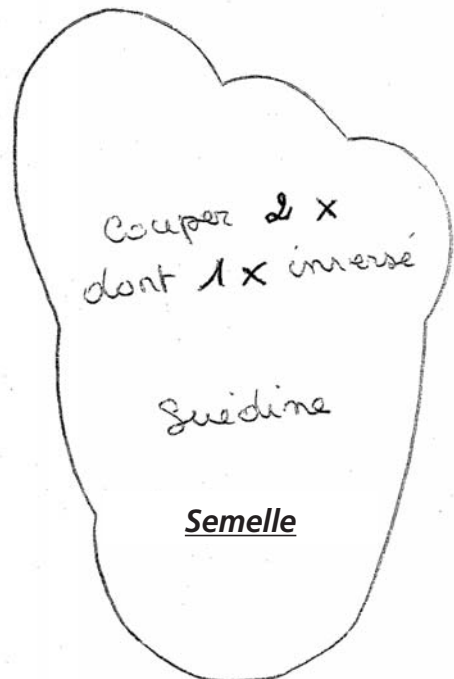 Couper 2 x
dont 1 x inversé
Suédine
Semelle